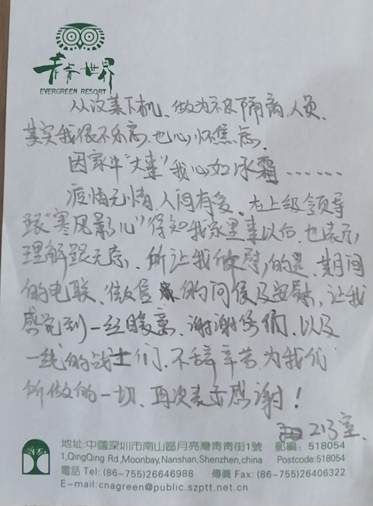 青青世界
EVERGREEN RESORT
从汶莱下机、做为被隔离人员、
其实我很不乐意,也心怀焦虑
因家中"大事"我心如冰霜……
疫情无情人间有爱、在上级领导
跟"寒风影儿"得知我家里事以后、也表示
理解跟无奈、所让我欣慰的是、期间
的电联、做医的问候及安慰、让我
感觉到一丝暖意、谢谢你们、以及
一线的战士们、不辞辛苦为我们
所做的一切、再次表示感谢!
213室
地址:中國深圳市南山區月亮灣青青街1號 郵編:518054
1,QingQing Rd,Moonbay,Nanshan,Shenzhen,china Postcode:518054
電話 Tel: (86-755)26646988 傳真 Fax: (86-755)26406322
E-mail:cnagreen@public.szptt.net.cn